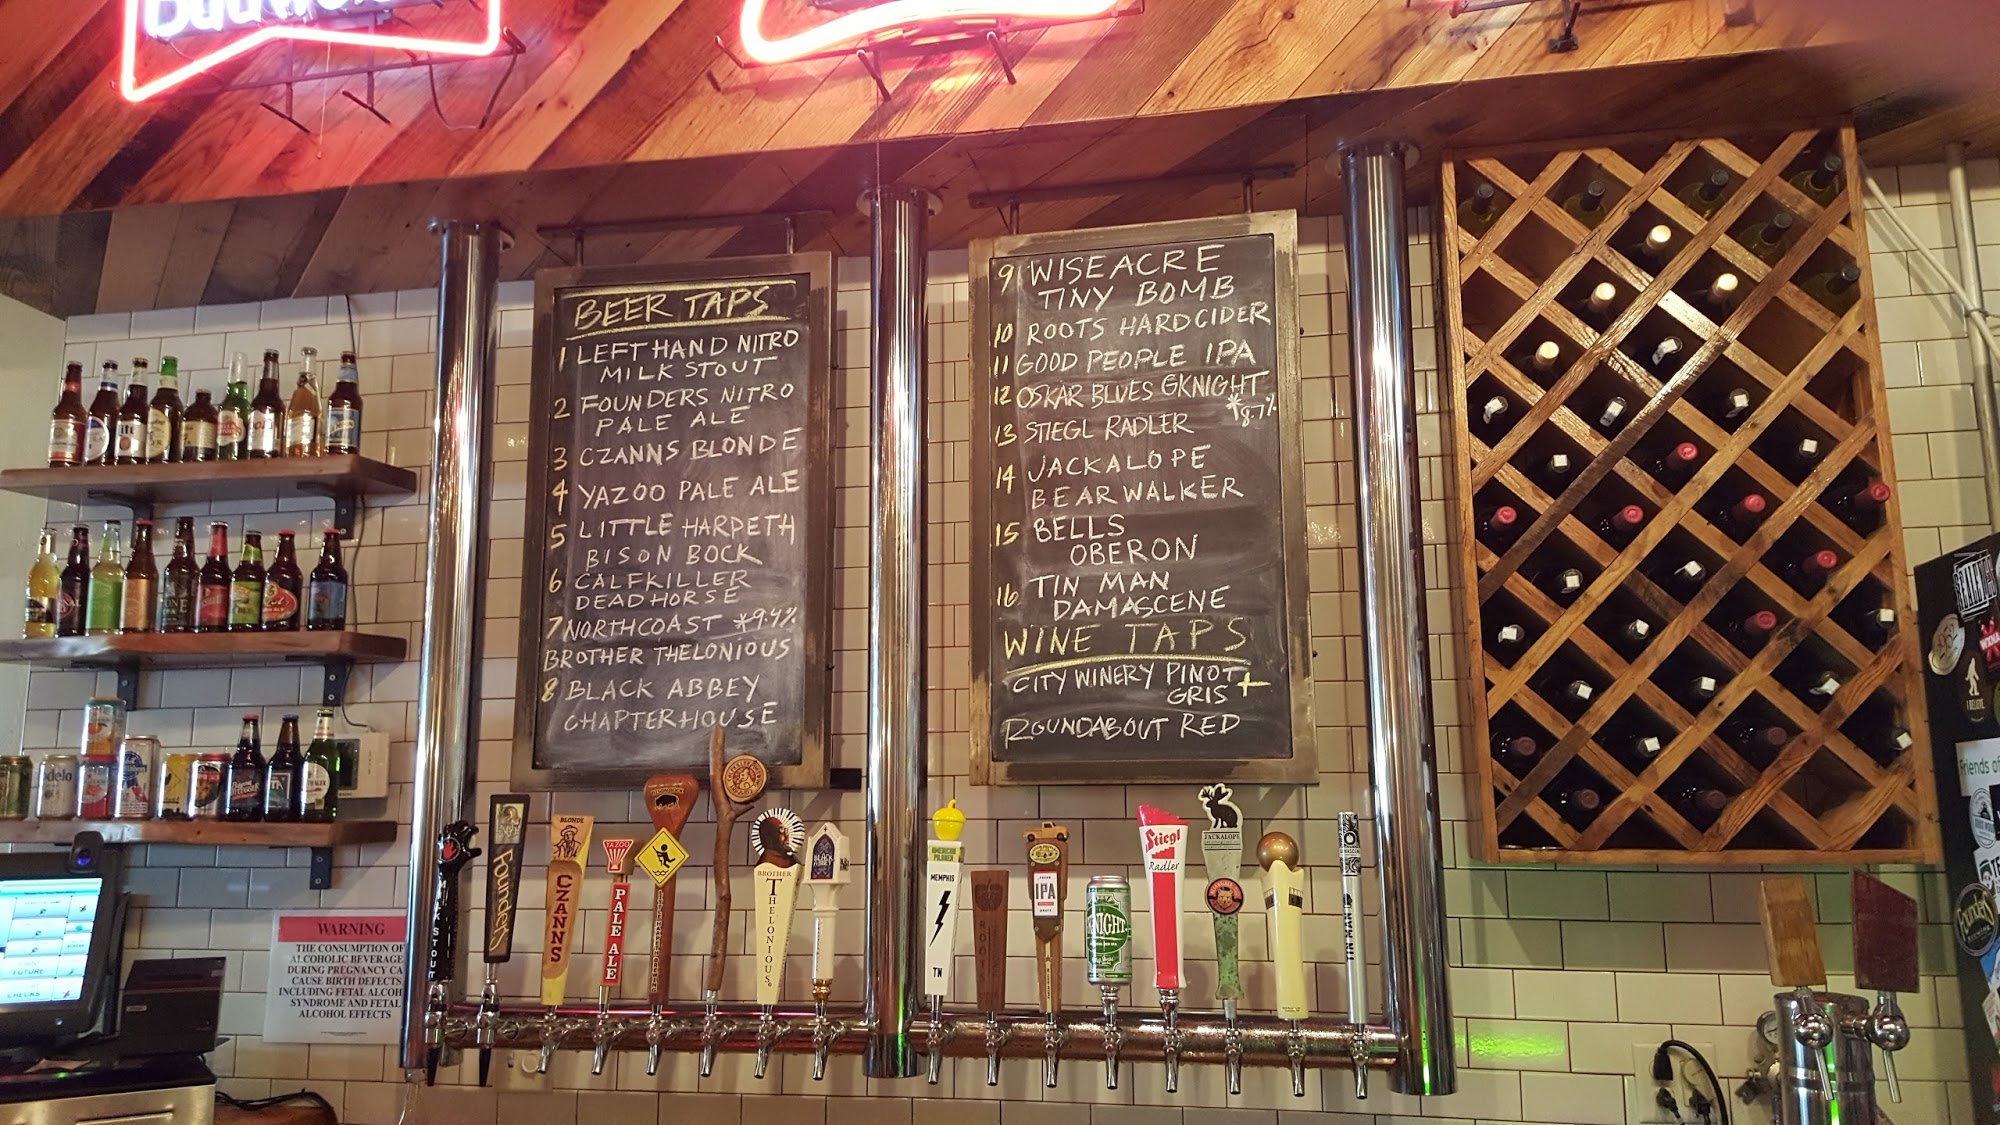 BEER TAPS
1 LEFT HAND NITRO
MILK STOUT
2 FOUNDERS NITRO
PALE ALE
3 CZANNS BLONDE
4 YAZOO PALE ALE
5 LITTLE HARPETH
BISON BOCK
6 CALFKILLER
DEADHORSE
7 NORTHCOAST *9.4%
BROTHER THELONIOUS
8 BLACK ABBEY
CHAPTERHOUSE
9 WISEACRE
TINY BOMB
10 ROOTS HARD CIDER
11 GOOD PEOPLE IPA
12 OSKAR BLUES GKNIGHT
*8.7%
13 STIEGL RADLER
14 JACKALOPE
BEARWALKER
15 BELLS
OBERON
16 TIN MAN
DAMASCENE
WINE TAPS
CITY WINERY PINOT
GRIS +
ROUNDABOUT RED
WARNING
THE CONSUMPTION OF
ALCOHOLIC BEVERAGE
DURING PREGNANCY CA
CAUSE BIRTH DEFECTS
INCLUDING FETAL ALCOH
SYNDROME AND FETAL
ALCOHOL EFFECTS
FUTURE
CHECKS
MILK STOUT
Founders
BLONDE
CZANNS
YAZOO
PALE ALE
BROTHER
THELONIOUS
BLACK
ABBEY
AMERICAN
PILSNER
MEMPHIS
TN
ROOTS
IPA
KNIGHT
Stiegl
Radler
JACKALOPE
TIN MAN
Friends of
I BELIEVE
Founders